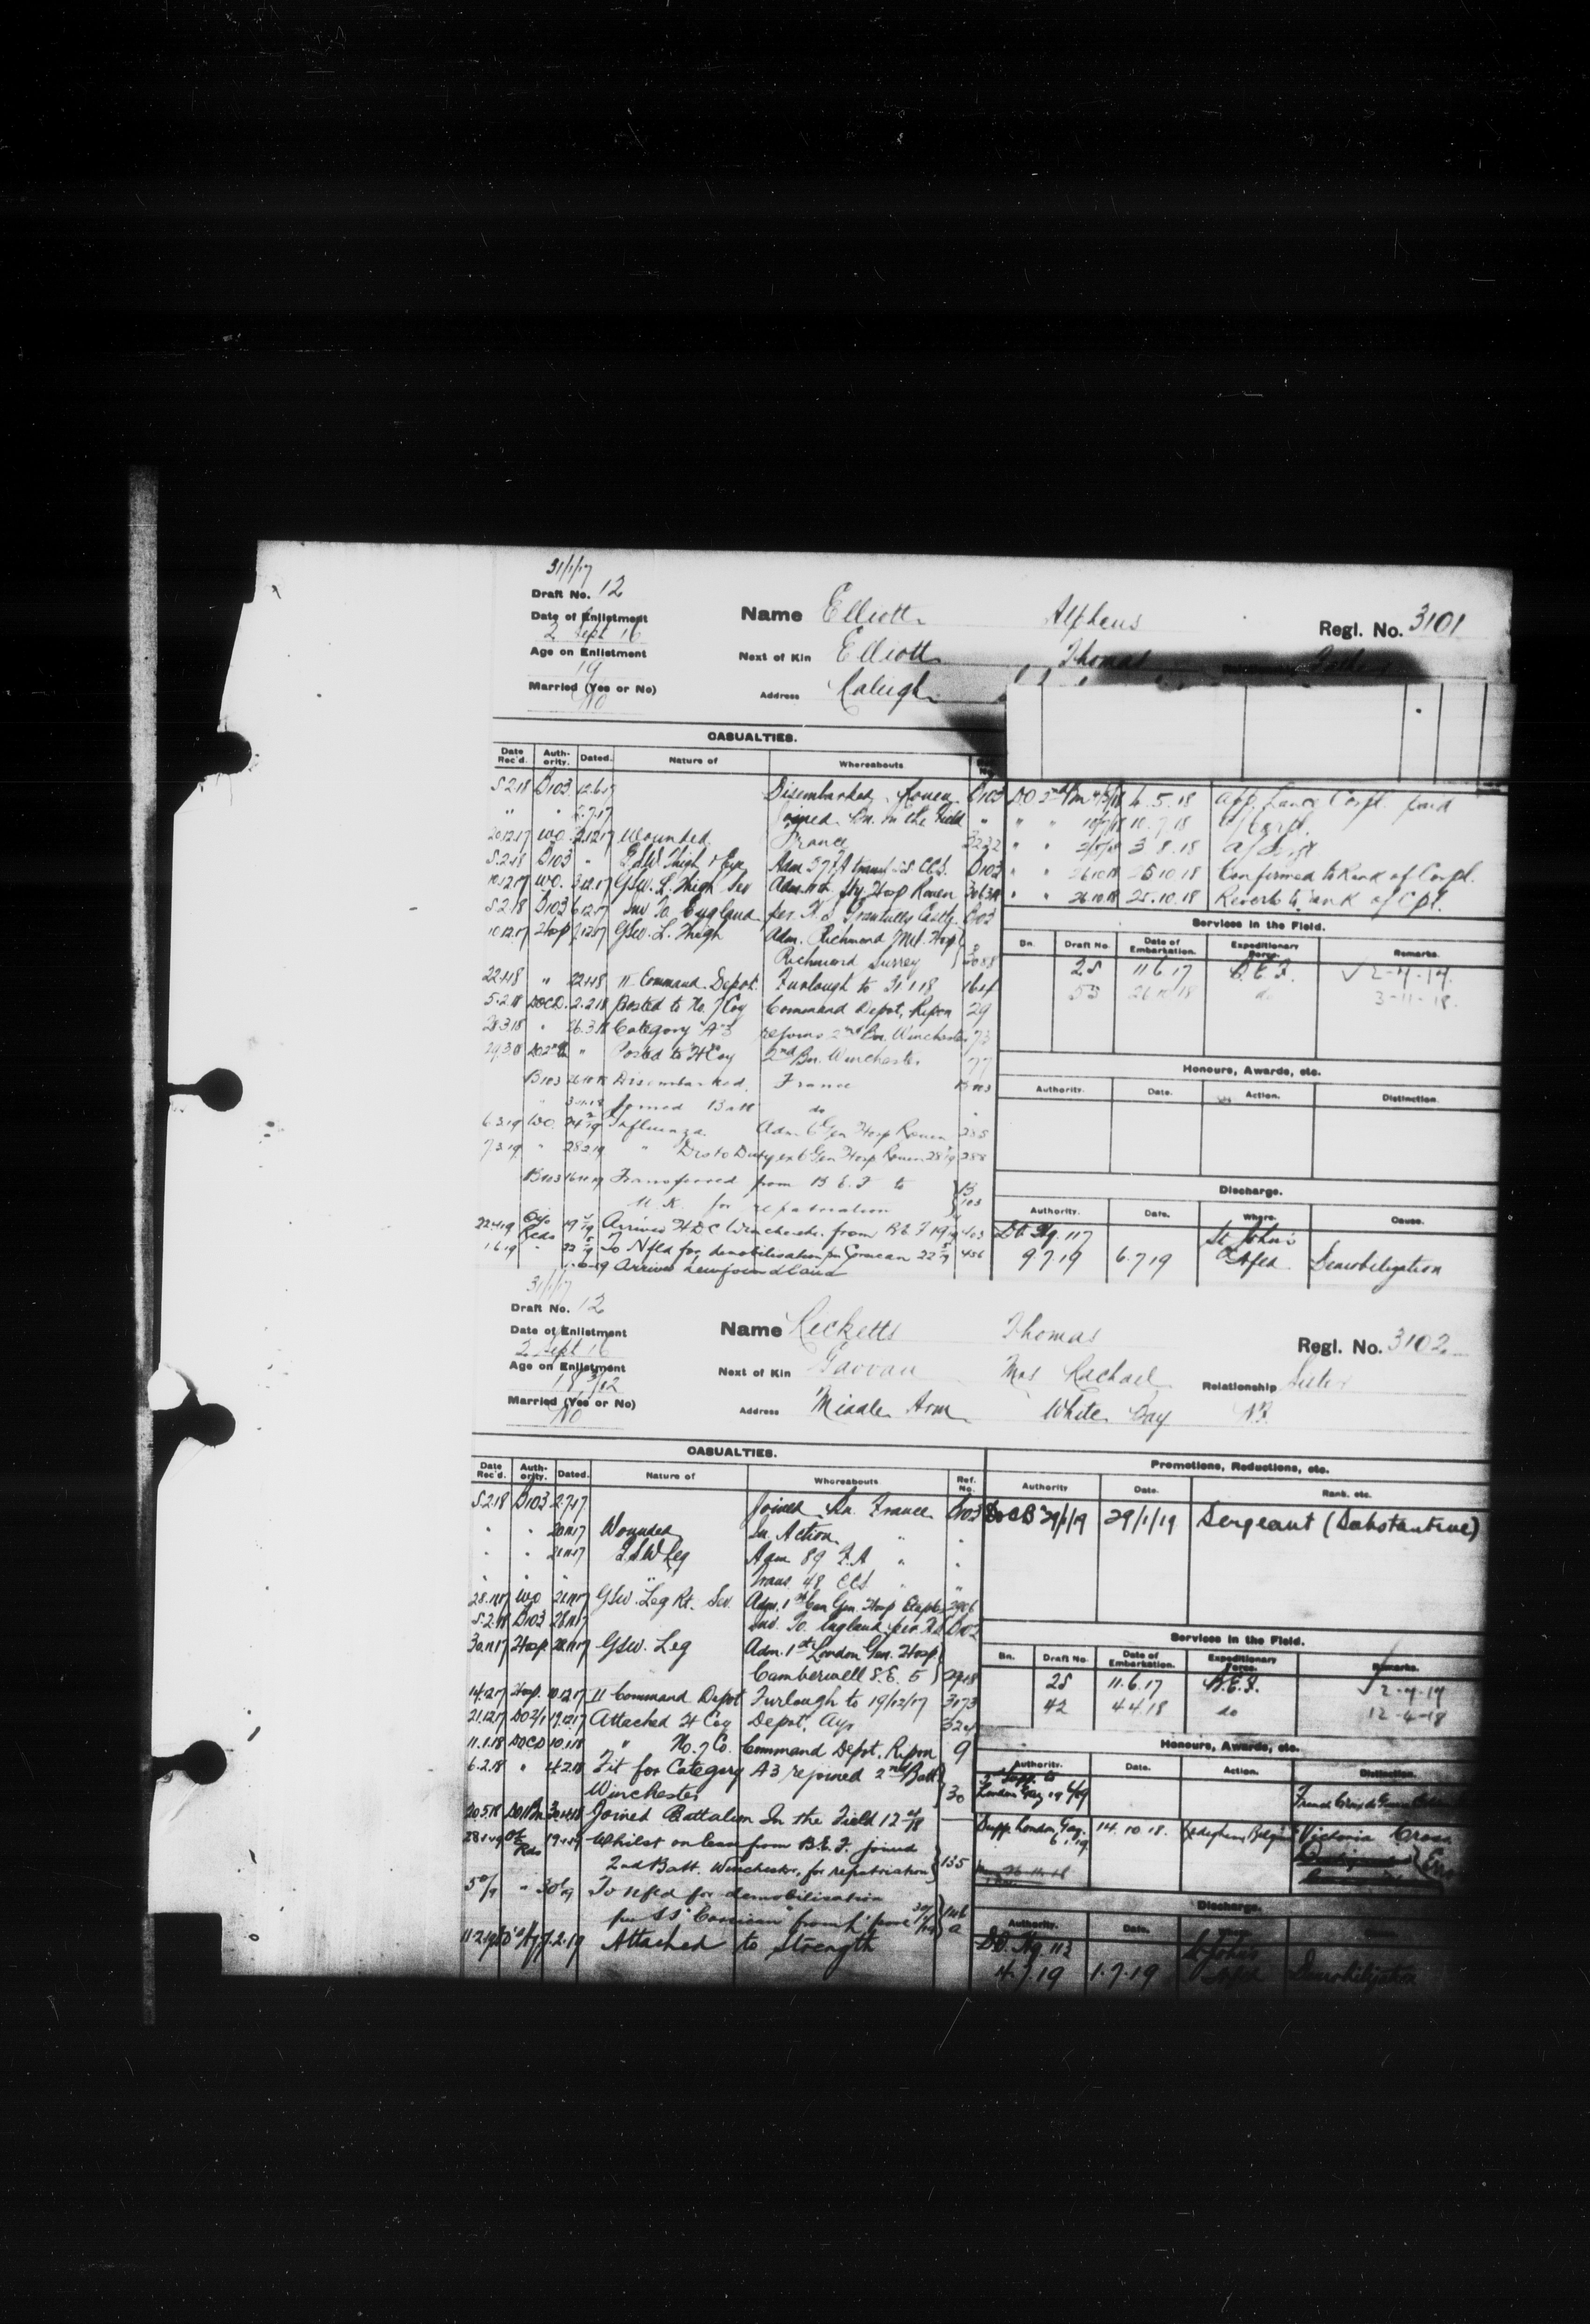 31/1/17
Draft No. 12
Date of Enlistment
2 Sept 16
Age on Enlistment
19
Married (Yes or No)
No
Name Elliott Alpheus Regl. No. 3101
Next of Kin Elliott Thomas
Address Raleigh
CASUALTIES.
Date Rec'd. Auth-ority. Dated. Nature of Whereabouts
5.2.18 B103 12.6.17 Disembarked Rouen B103
" " 2.7.17 Joined Bn. in the Field "
20.12.17 WO. Wounded France 3222
5.2.18 B103 " GSW Thigh & Eye Adm 57 FA B103
10.12.17 WO. 3.12.17 GSW. L. Thigh Sev Adm Hosp Rouen
5.2.18 B103 6.12.17 Inv To England per. H.S. Grantully Castle B103
10.12.17 Hosp 7.12.17 GSW. L. Thigh Adm. Richmond Mil. Hosp
Richmond Surrey 3088
22.1.18 " 22.1.18 Command Depot Furlough to 31.1.18 164
5.2.18 DOCD. 2.2.18 Posted to No. 7 Coy Command Depot, Ripon 29
28.3.18 " 26.3.18 Category A3 rejoins 2nd Bn. Winchester 73
29.3.18 " Posted to "H" Coy 2nd Bn. Winchester 77
B103 26.10.18 Disembarked France B103
3.11.18 Joined Batt do "
6.3.19 WO. Influenza Adm 6 Gen Hosp Rouen 285
7.3.19 " 28.2.19 " Dis to Duty ex 6 Gen Hosp Rouen 288
B103 Transferred from B.E.F. to B
U.K. for repatriation 103
22.4.19 Arrived HDC Winchester from B.E.F. 403
1.6.19 To Nfld for demobilisation per Corsican 436
Arrived Newfoundland
DO 2nd Bn 4.5.18 App. Lance Corpl. paid
" " 10.7.18 A/Corpl.
" " 3.8.18 A/Sergt
" " 26.10.18 25.10.18 Confirmed to Rank of Corpl.
" " 26.10.18 25.10.18 Reverts to rank of Cpl.
Services in the Field.
Bn. Draft No. Date of Embarkation. Expeditionary Force. Remarks.
25 11.6.17 B.E.F. ✓ 2-7-17.
53 26.10.18 do 3-11-18.
Honours, Awards, etc.
Authority. Date. Action. Distinction.
Discharge.
Authority. Date. Where. Cause.
DO Hq. 117 St John's
9.7.19 6.7.19 Nfld. Demobilization
31/1/17
Draft No. 12
Date of Enlistment
2 Sept 16
Age on Enlistment
18 3/12
Married (Yes or No)
No
Name Ricketts Thomas Regl. No. 3102
Next of Kin Gavvan Mrs Rachael Relationship Sister
Address Middle Arm White Bay N.F.
CASUALTIES.
Date Rec'd. Auth-ority. Dated. Nature of Whereabouts Ref. No.
5.2.18 B103 2.7.17 Joined Bn. France B103
" " 20.11.17 Wounded In Action " "
" " 21.11.17 GSW Leg Adm 89 F.A " "
" " " " Trans. 48 CCS " "
28.11.17 WO 21.11.17 GSW. Leg Rt. Sev. Adm. 1st Can Gen. Hosp Etaples 2906
5.2.18 B103 28.11.17 Inv. To. England per
30.11.17 Hosp 28.11.17 GSW. Leg Adm. 1st London Gen. Hosp
Camberwell S.E. 5
14.12.17 Hosp. 10.12.17 Command Depot Furlough to 19/12/17 3173
21.12.17 DO2/1 19.12.17 Attached H Coy Depot, Ayr 324
11.1.18 DOCD 10.1.18 " No. 7 Co. Command Depot, Ripon 9
6.2.18 " 4.2.18 Fit for Category A3 rejoined 2nd Batt
Winchester 30
20.5.18 Joined Battalion In the Field
28.1.19 Whilst on leave from B.E.F. joined
2nd Batt. Winchester, for repatriation 135
To Nfld for demobilisation
per SS "Corsican" from L'pool
11.2.19 7.2.19 Attached to Strength
Promotions, Reductions, etc.
Authority Date. Rank. etc.
29/1/19 29/1/19 Sergeant (Substantive)
Services in the Field.
Bn. Draft No. Date of Embarkation. Expeditionary Force. Remarks.
25 11.6.17 B.E.F. ✓ 2-7-17
42 4.4.18 do 12-4-18
Honours, Awards, etc.
Authority. Date. Action. Distinction.
London Gaz French Croix de Guerre
Supp. London Gaz. 14.10.18. Ledeghem, Belgium Victoria Cross
6.1.19
Discharge.
Authority. Date.
DO. Hq. 113 St John's
4.7.19 1.7.19 Nfld Demobilization